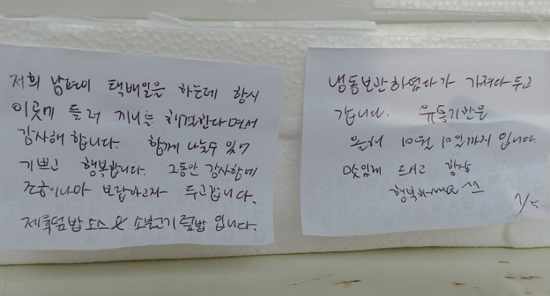 저희 남편이 택배일을 하는데 항시
이곳에 들러 끼니를 해결한다면서
감사해 합니다. 함께 나눌수 있어
기쁘고 행복합니다. 그동안 감사함에
조금이나마 보답하고자 두고갑니다.
제육덮밥 소스와 소불고기 덮밥 입니다.
냉동보관 하였다가 가져다 두고
갑니다. 유통기한은
올해 10월 10일까지 입니다
맛있게 드시고 항상
행복하세요 ^^